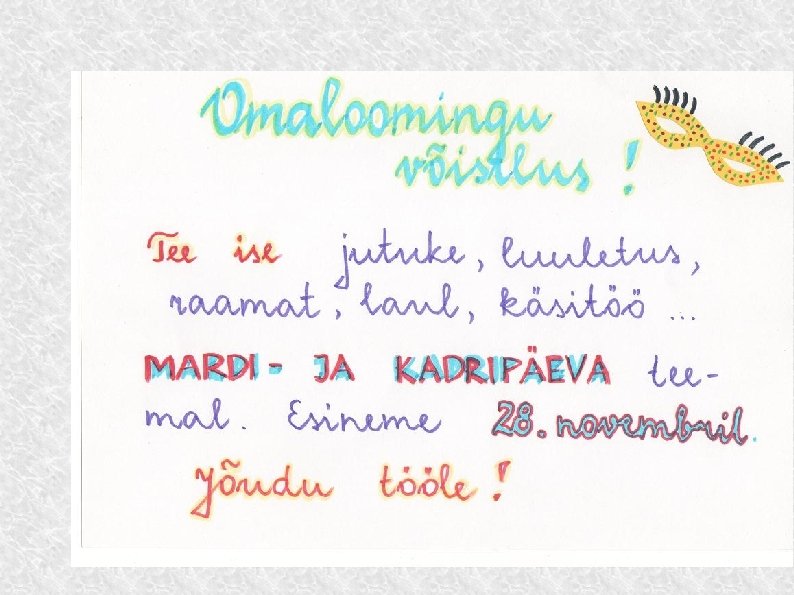 Omaloomingu
võistlus!
Tee ise jutuke, luuletus,
raamat, laul, käsitöö ...
MARDI- JA KADRIPÄEVA tee-
mal. Esineme 28. novembril.
Jõudu tööle!